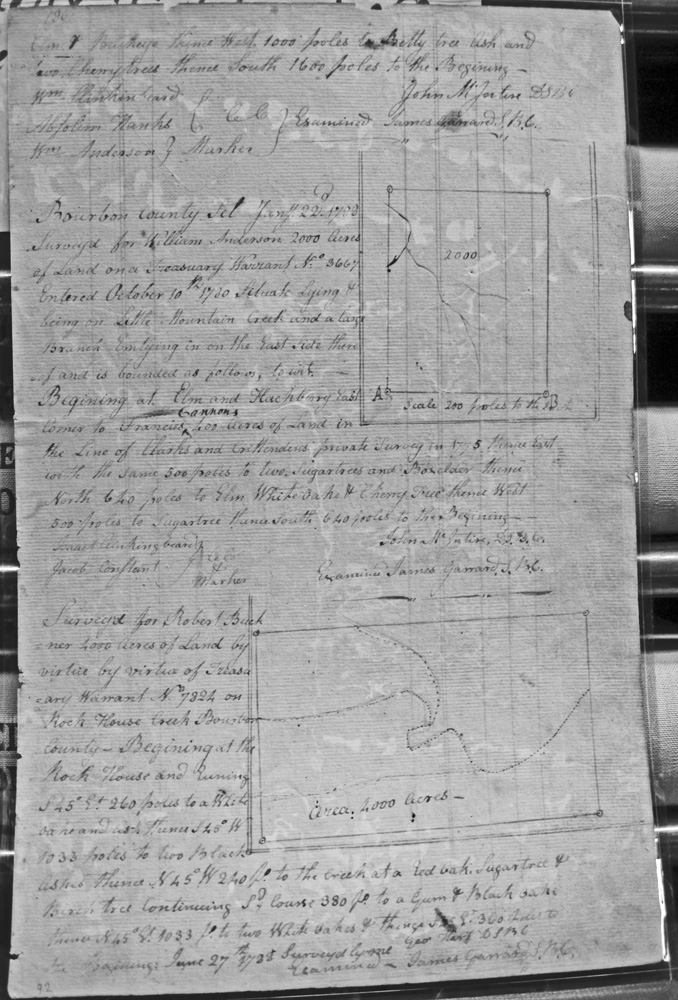 136
Elm & Buckeye thence West, 1000 poles to Betty tree Ash and
two Cherry trees thence South 1600 poles to the Begining —
Wm Clinkinbeard
John McIntire DSBC
Absolem Hanks } CC } Examined James Garrard S.B.C.
Wm Anderson } Marker
Bourbon County Sct Jany 22d
Surveyd for William Anderson 2000 Acres
of Land on a Treasuary Warrant No 3667
Entered October 10th 1780 Situate Lying &
being on Little Mountain Creek and a large
Branch Emtying in on the East Side there
of and is bounded as follows, to wit
Begining at Elm and Hackberry East
Cannons
corner to Francies 400 Acres of Land in
the Line of Clarks and Crittendens private Survey in thence East
with the same 500 poles to two Sugartrees and Boxelder thence
North 640 poles to Elm White oake & Cherry Tree thence West
500 poles to Sugartree thence South 640 poles to the Begining —
Isaac Clinkingbeard
John McIntire, D.S.B.C.
Jacob Constant } CC
& Marker
Examined James Garrard, S.B.C.
2000
A
B
Scale 200 poles to the Inch
Surveyd for Robert Buck
=ner 4000 Acres of Land by
virtue by virtue of Treasu
=ary Warrant No 7824 on
Rock House Creek Bourbon
County — Begining at the
Rock House and Runing
S 45° Et 260 poles to a White
oake and ash thence S 45° W
1033 poles to two Black
ashes thence N 45° W 240 ps to the Creek at a Red oak, Sugartree &
Beech tree Continuing Sd Course 380 ps to a Gum & Black oake
thence N 45° Et 1033 ps to two White oakes & thence S 45 Et 360 poles to
the Begining June 27th Surveyd by me Geo Hart DSBC
Examined — James Garrard, S.B.C.
Area, 4000 Acres —
92